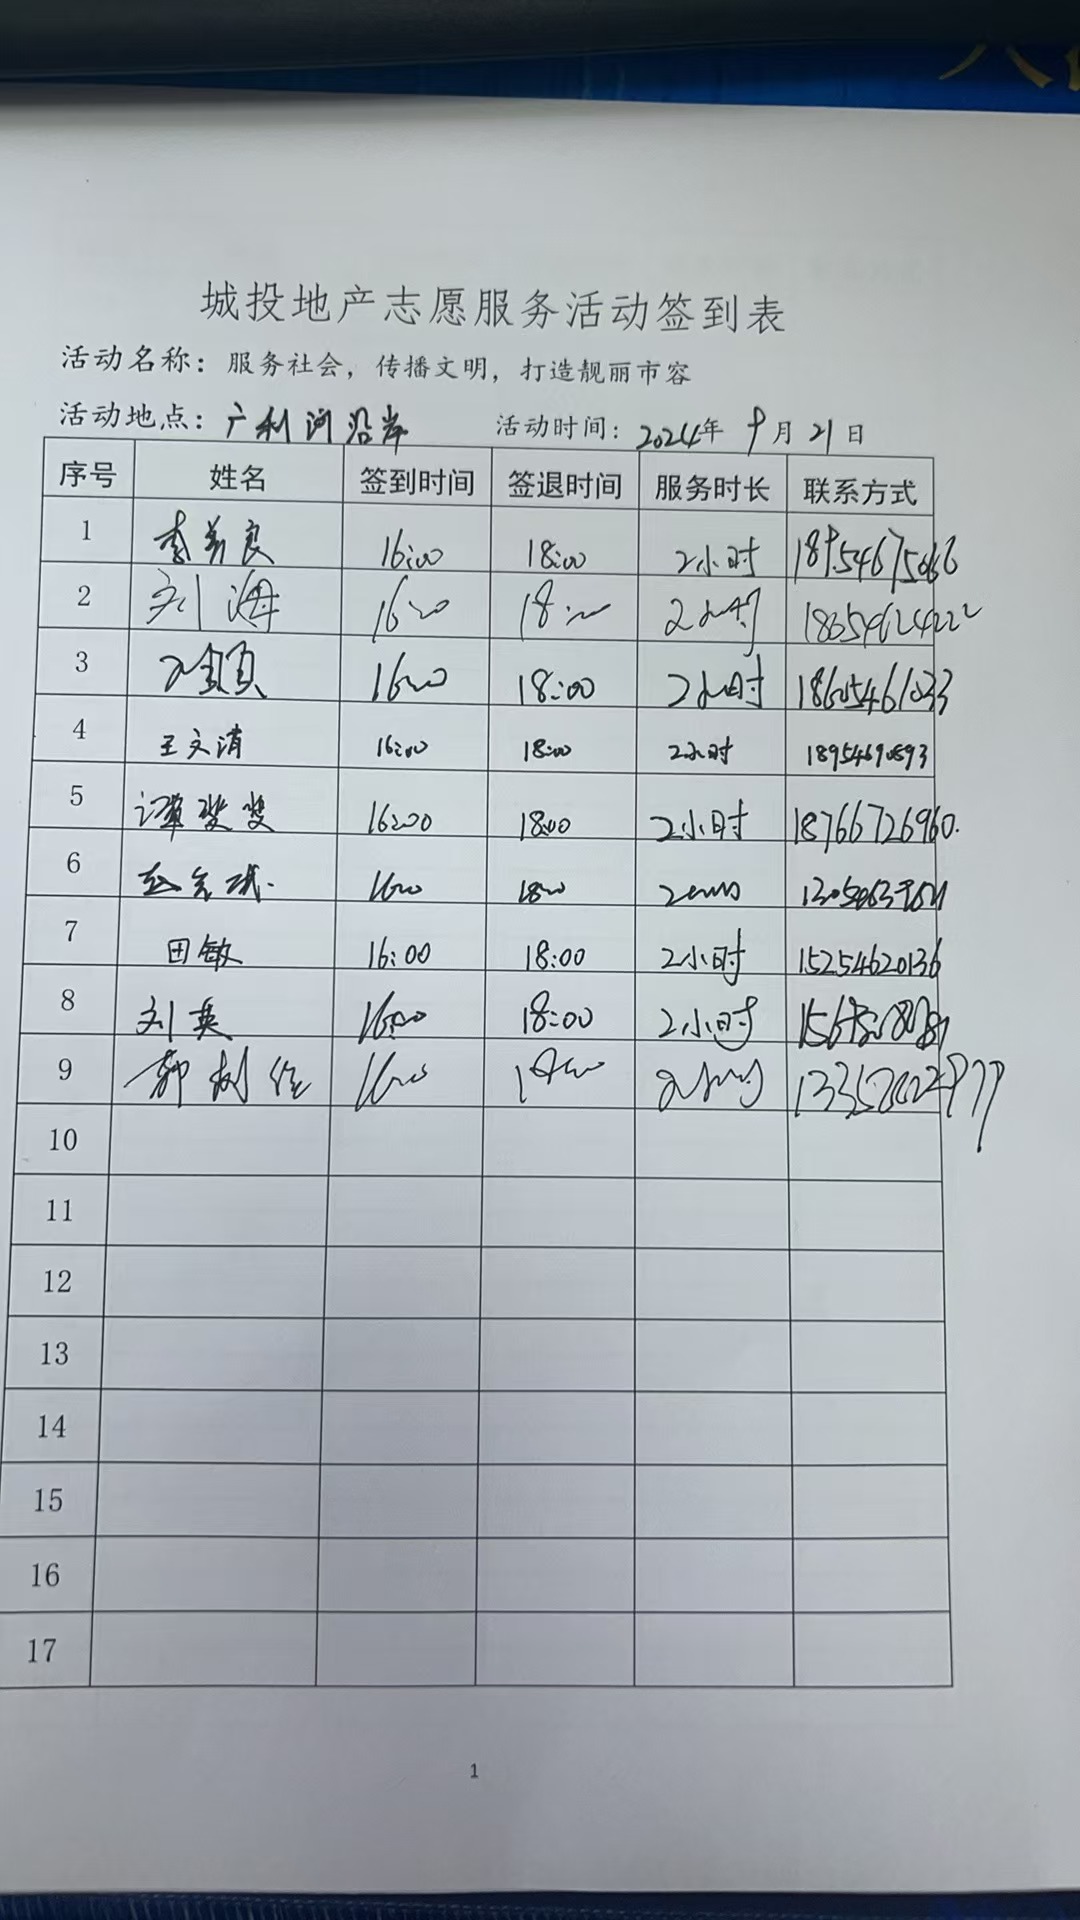 城投地产志愿服务活动签到表
活动名称：服务社会，传播文明，打造靓丽市容
活动地点：广利河沿岸 活动时间：2024年 9月 21日
序号 姓名 签到时间 签退时间 服务时长 联系方式
1 李美良 16:00 18:00 2小时
2 刘海 16:00 18:00 2小时 18654624222
3 16:00 18:00 2小时 18605461033
4 王文清 16:00 18:00 2小时 18954690593
5 谭斐斐 16:00 18:00 2小时 18766726960.
6 16:00 18:00 2小时
7 田敏 16:00 18:00 2小时 15254620136
8 刘英 16:00 18:00 2小时
9 郭树 16:00 18:00 2小时
10
11
12
13
14
15
16
17
1